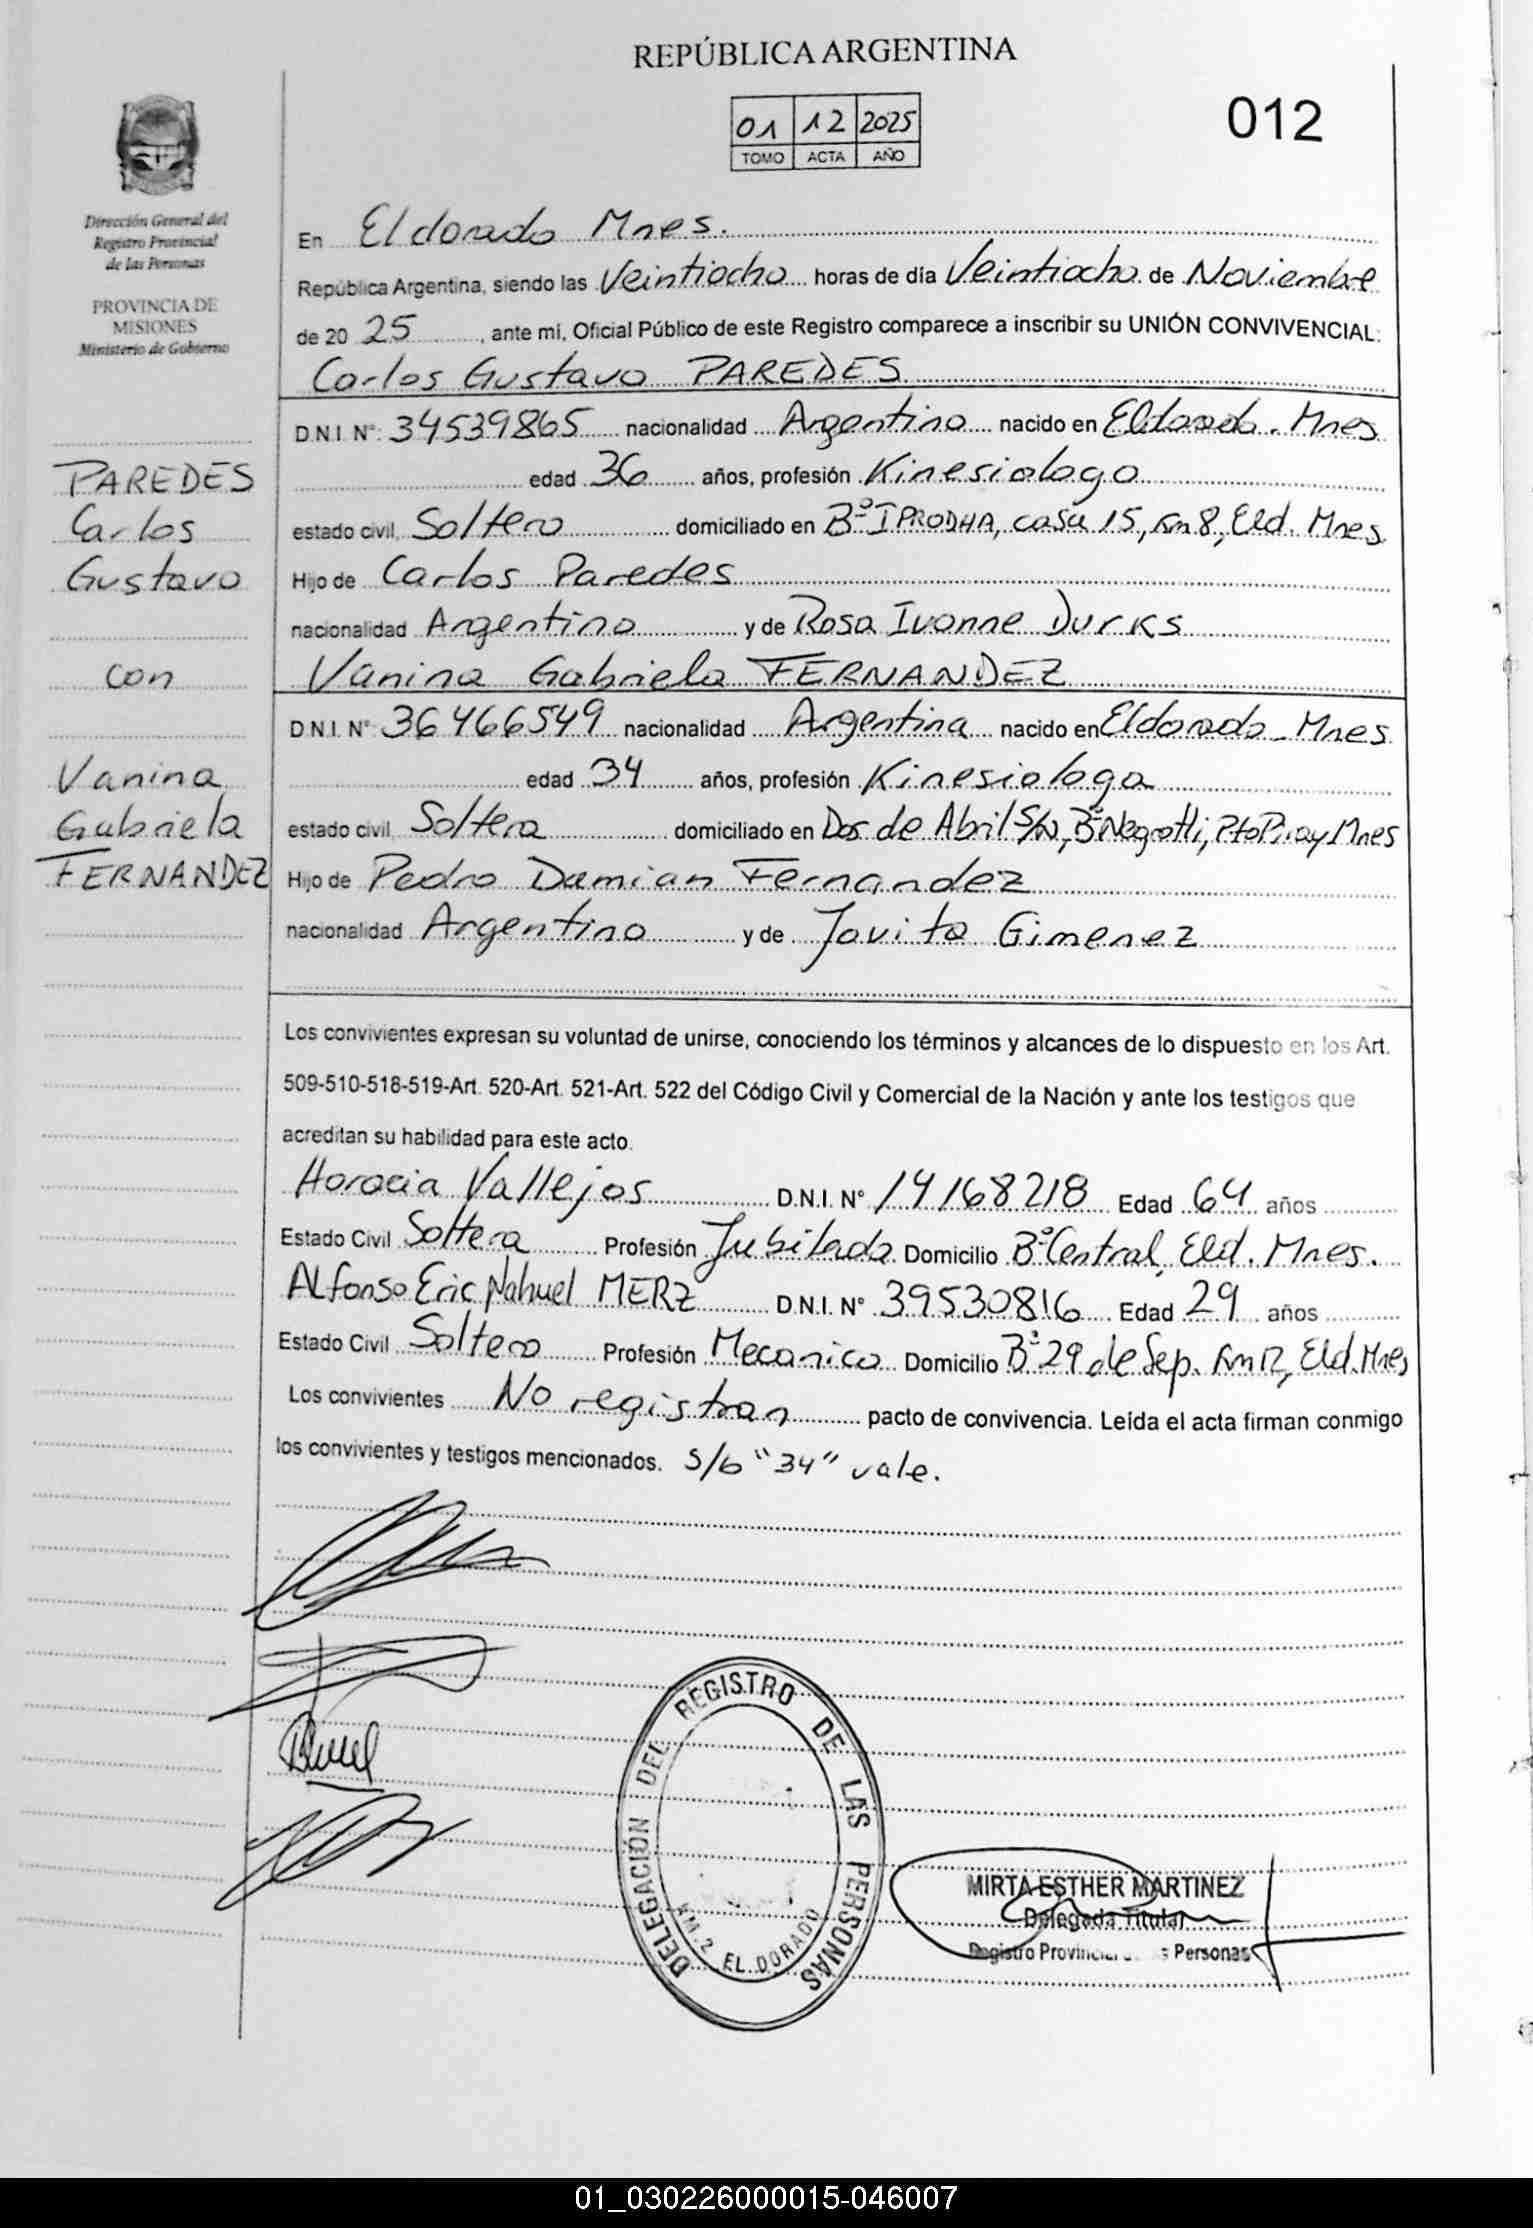 REPÚBLICA ARGENTINA
01 12 2025
TOMO ACTA AÑO
012
Dirección General del
Registro Provincial
de las Personas
PROVINCIA DE
MISIONES
Ministerio de Gobierno
En Eldorado Mnes.
República Argentina, siendo las Veintiocho horas de día Veintiocho de Noviembre
de 20 25, ante mi, Oficial Público de este Registro comparece a inscribir su UNIÓN CONVIVENCIAL:
Carlos Gustavo PAREDES
D.N.I. N° 34539865 nacionalidad Argentino nacido en Eldorado. Mnes
edad 36 años, profesión Kinesiologo
estado civil Soltero domiciliado en B° IPRODHA, casa 15, Km 8, Eld. Mnes.
Hijo de Carlos Paredes
nacionalidad Argentino y de Rosa Ivonne Durks
Vanina Gabriela FERNANDEZ
D.N.I. N° 36466549 nacionalidad Argentina nacido en Eldorado - Mnes
edad 34 años, profesión Kinesiologa
estado civil Soltera domiciliado en Dos de Abril S/N, B° Negrotti, Pto Piray Mnes
Hijo de Pedro Damian Fernandez
nacionalidad Argentino y de Jovita Gimenez
PAREDES
Carlos
Gustavo
con
Vanina
Gabriela
FERNANDEZ
Los convivientes expresan su voluntad de unirse, conociendo los términos y alcances de lo dispuesto en los Art.
509-510-518-519-Art. 520-Art. 521-Art. 522 del Código Civil y Comercial de la Nación y ante los testigos que
acreditan su habilidad para este acto.
Horacia Vallejos D.N.I. N° 14168218 Edad 64 años
Estado Civil Soltera Profesión Jubilada Domicilio B° Central, Eld. Mnes.
Alfonso Eric Nahuel MERZ D.N.I. N° 39530816 Edad 29 años
Estado Civil Soltero Profesión Mecanico Domicilio B° 29 de Sep. Km 12, Eld. Mnes
Los convivientes No registran pacto de convivencia. Leída el acta firman conmigo
los convivientes y testigos mencionados. S/b "34" vale.
DELEGACIÓN DEL REGISTRO DE LAS PERSONAS
KM. 2 EL DORADO
MIRTA ESTHER MARTINEZ
Delegada Titular
Registro Provincial Personas
01_030226000015-046007